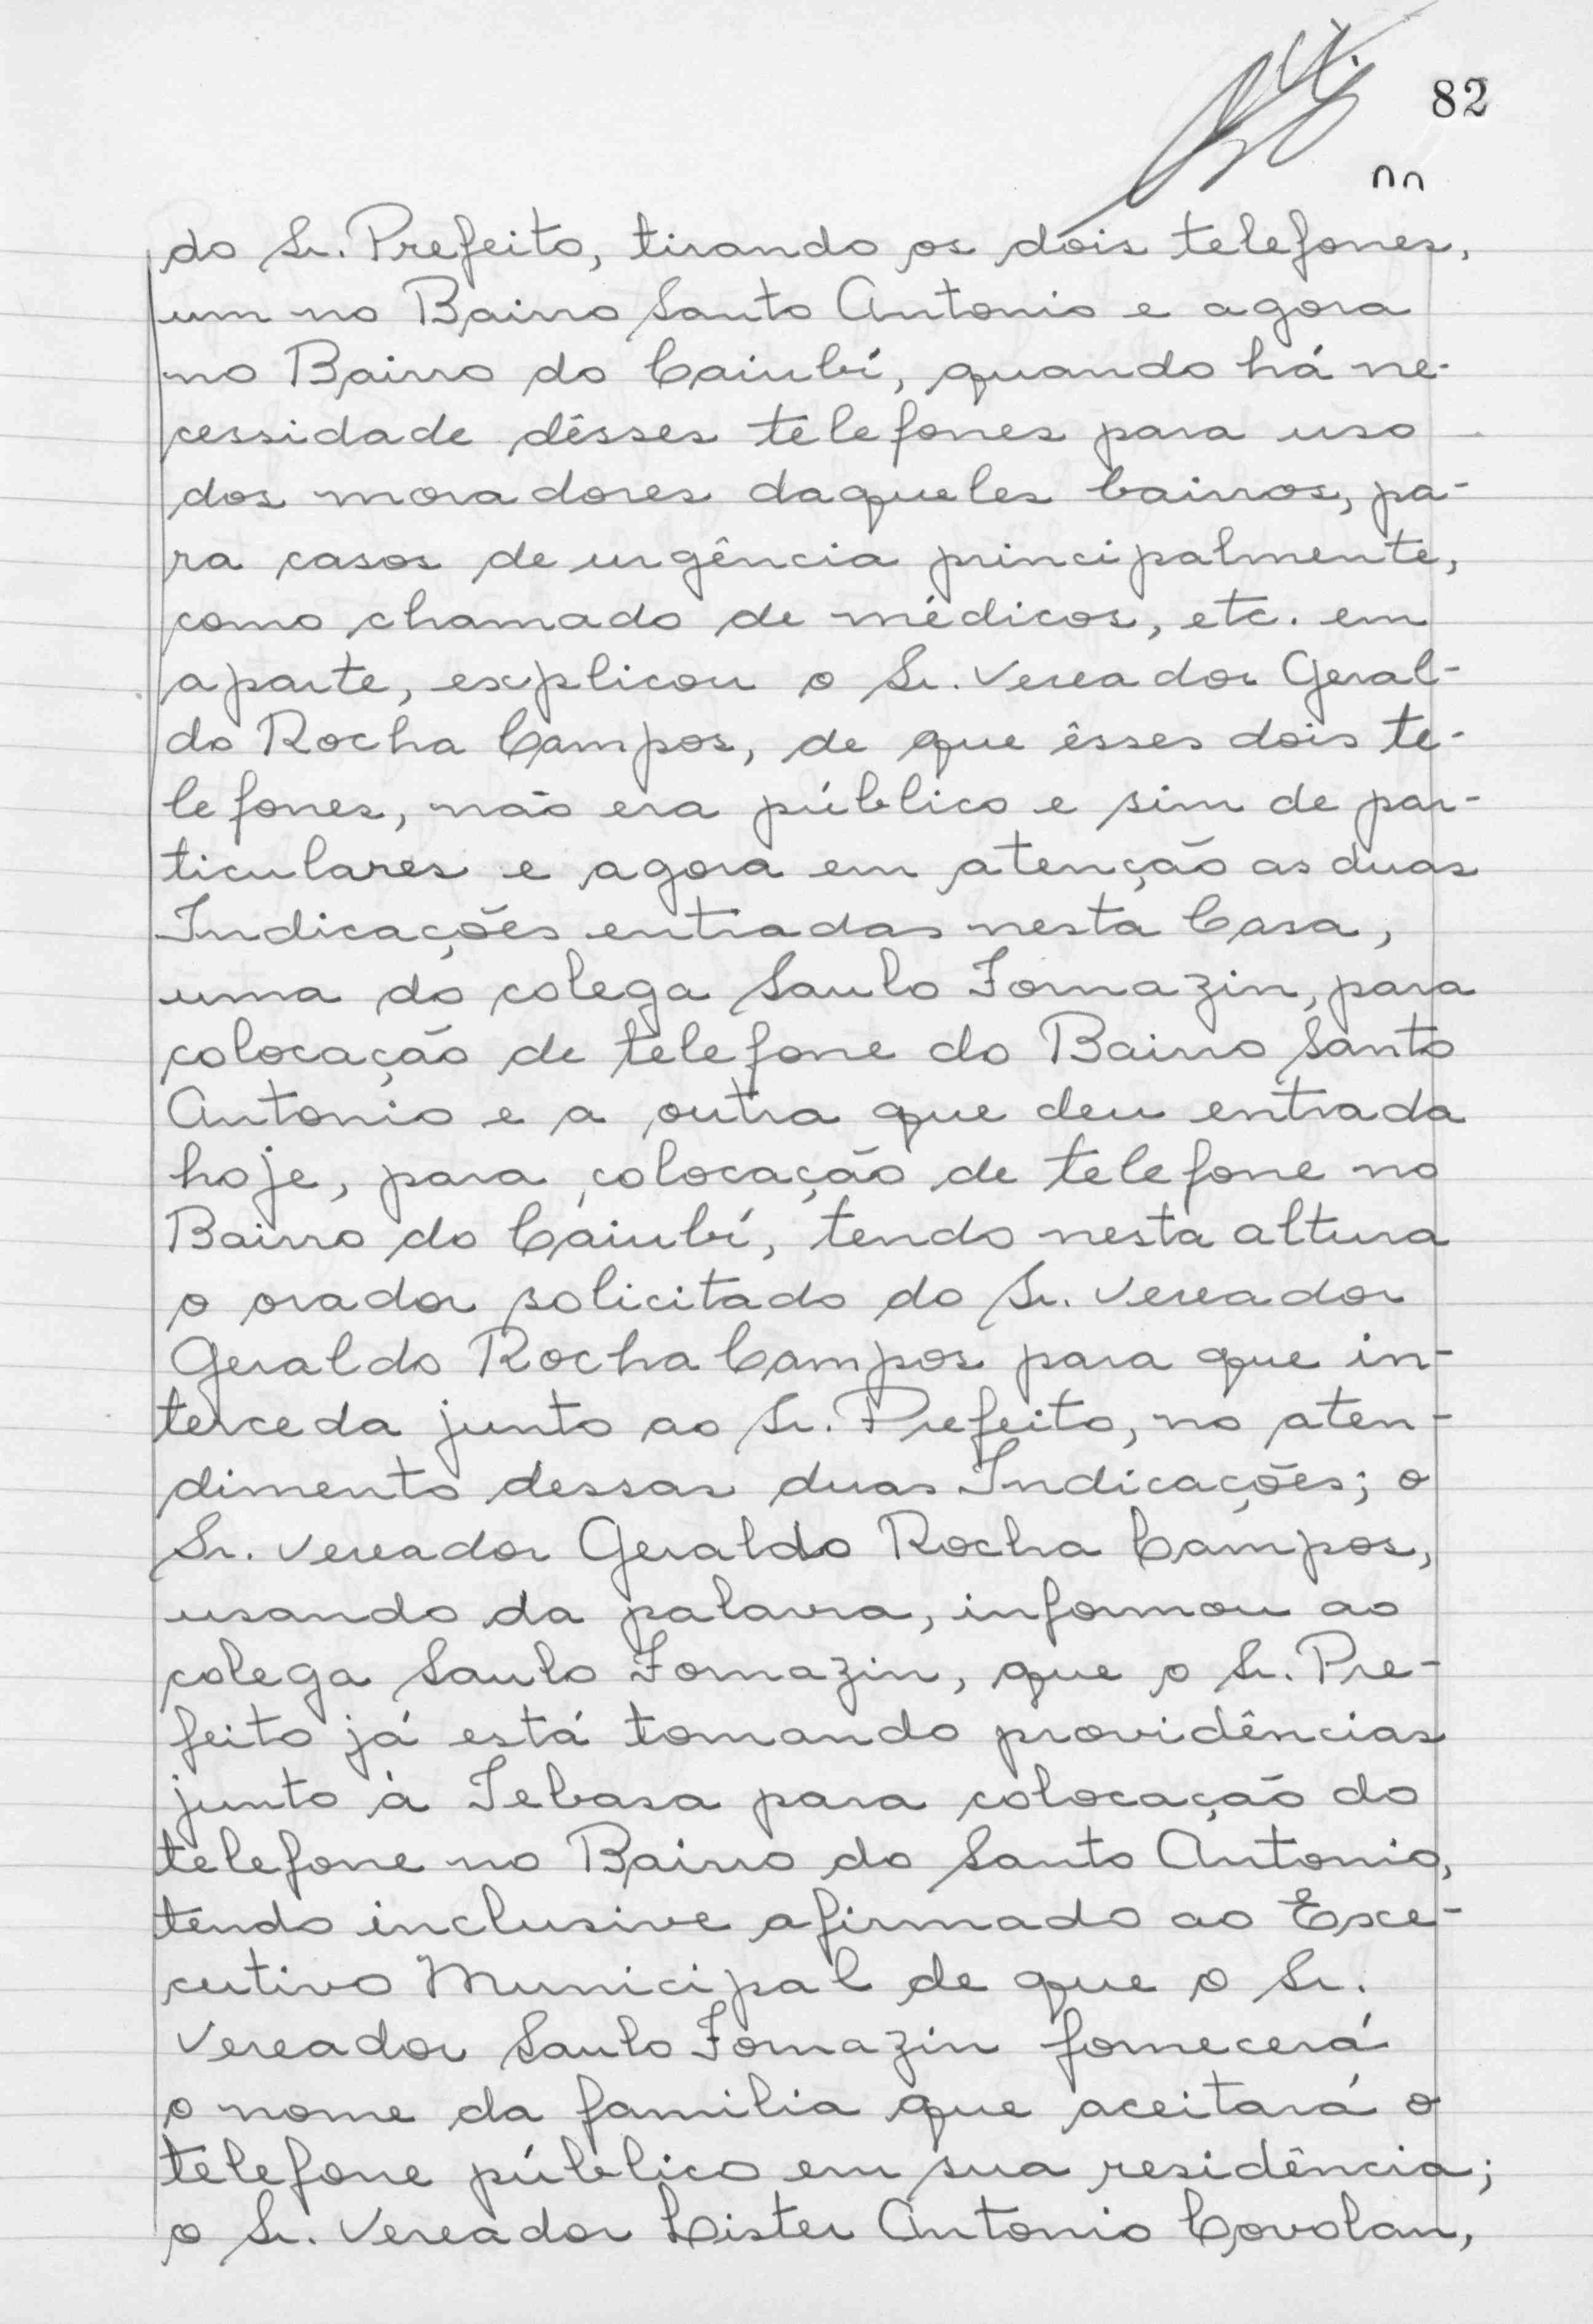 82
do Sr. Prefeito, tirando os dois telefones,
um no Bairro Santo Antonio e agora
no Bairro do Caiubí, quando há ne-
cessidade dêsses telefones para uso
dos moradores daqueles bairros, pa-
ra casos de urgência principalmente,
como chamado de médicos, etc. em
aparte, explicou o Sr. Vereador Geral-
do Rocha Campos, de que êsses dois te-
lefones, não era público e sim de par-
ticulares e agora em atenção as duas
Indicações entradas nesta Casa,
uma do colega Saulo Fornazin, para
colocação de telefone do Bairro Santo
Antonio e a outra que deu entrada
hoje, para colocação de telefone no
Bairro do Caiubí, tendo nesta altura
o orador solicitado do Sr. Vereador
Geraldo Rocha Campos para que in-
terceda junto ao Sr. Prefeito, no aten-
dimento dessas duas Indicações; o
Sr. Vereador Geraldo Rocha Campos,
usando da palavra, informou ao
colega Saulo Fornazin, que o Sr. Pre-
feito já está tomando providências
junto à Tebasa para colocação do
telefone no Bairro do Santo Antonio,
tendo inclusive afirmado ao Exe-
cutivo Municipal de que o Sr.
Vereador Saulo Fornazin fornecerá
o nome da familia que aceitará o
telefone público em sua residência;
o Sr. Vereador Lister Antonio Covolan,